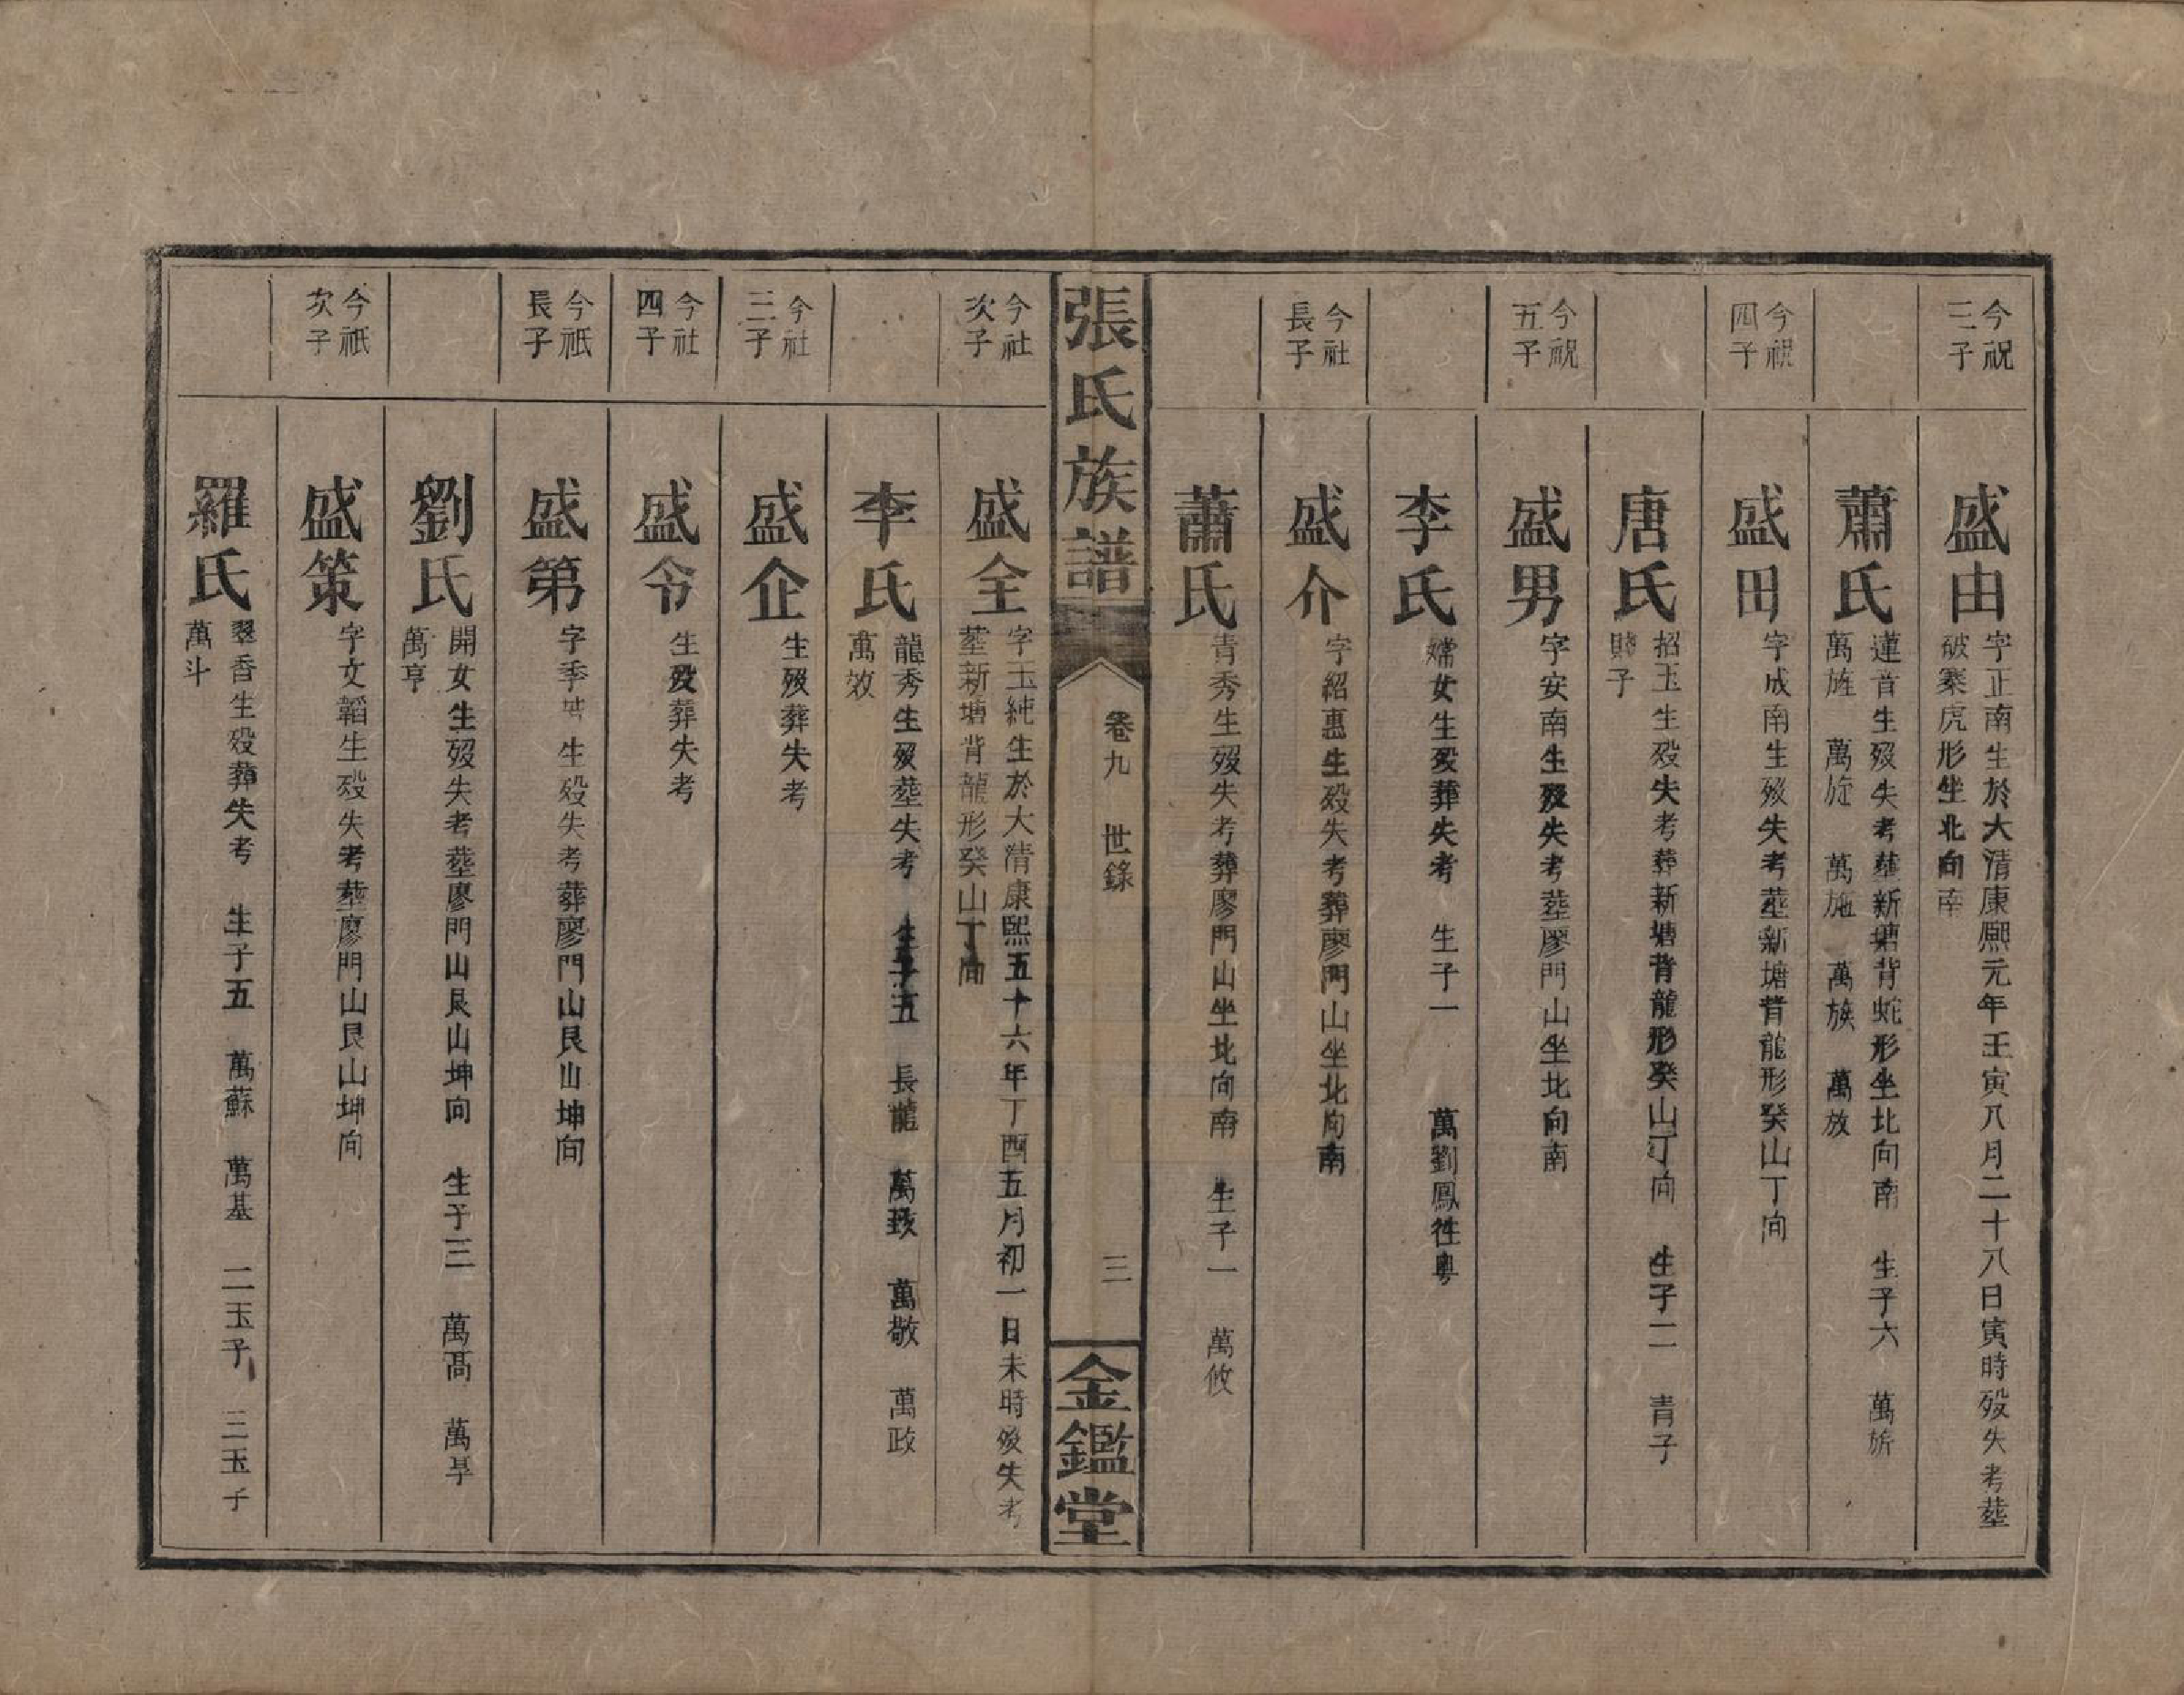 今祝
三子
盛由
字正南生於大清康熈元年壬寅八月二十八日寅時殁失考塟
破寨虎形坐北向南
蕭氏
蓮音生殁失考塟新塘背蛇形坐北向南 生子六 萬旂
萬旌 萬旋 萬施 萬族 萬放
今祝
四子
盛田
字成南生殁失考塟新塘背龍形癸山丁向
唐氏
招玉生殁失考葬新塘背龍形癸山丁向 生子二 青子
賤子
今祝
五子
盛男
字安南生殁失考塟廖門山坐北向南
李氏
嫦女生殁葬失考 生子一 萬劉鳳徃粵
今社
長子
盛介
字紹惠生殁失考葬廖門山坐北向南
蕭氏
青秀生殁失考葬廖門山坐北向南 生子一 萬攸
張氏族譜
卷九 世錄
三
金鑑堂
今社
次子
盛全
字玉純生於大清康熙五十六年丁酉五月初一日未時殁失考
塟新塘背龍形癸山丁向
李氏
龍秀生殁塟失考 生子五 長龍 萬致 萬敬 萬政
萬效
今社
三子
盛企
生殁葬失考
今社
四子
盛令
生殁葬失考
今祇
長子
盛第
字季 生殁失考葬廖門山艮山坤向
劉氏
開女生殁失考塟廖門山艮山坤向 生子三 萬高 萬
萬亨
今祇
次子
盛策
字文韜生殁失考塟廖門山艮山坤向
羅氏
翠香生殁葬失考 生子五 萬蘇 萬基 二玉子 三玉子
萬斗